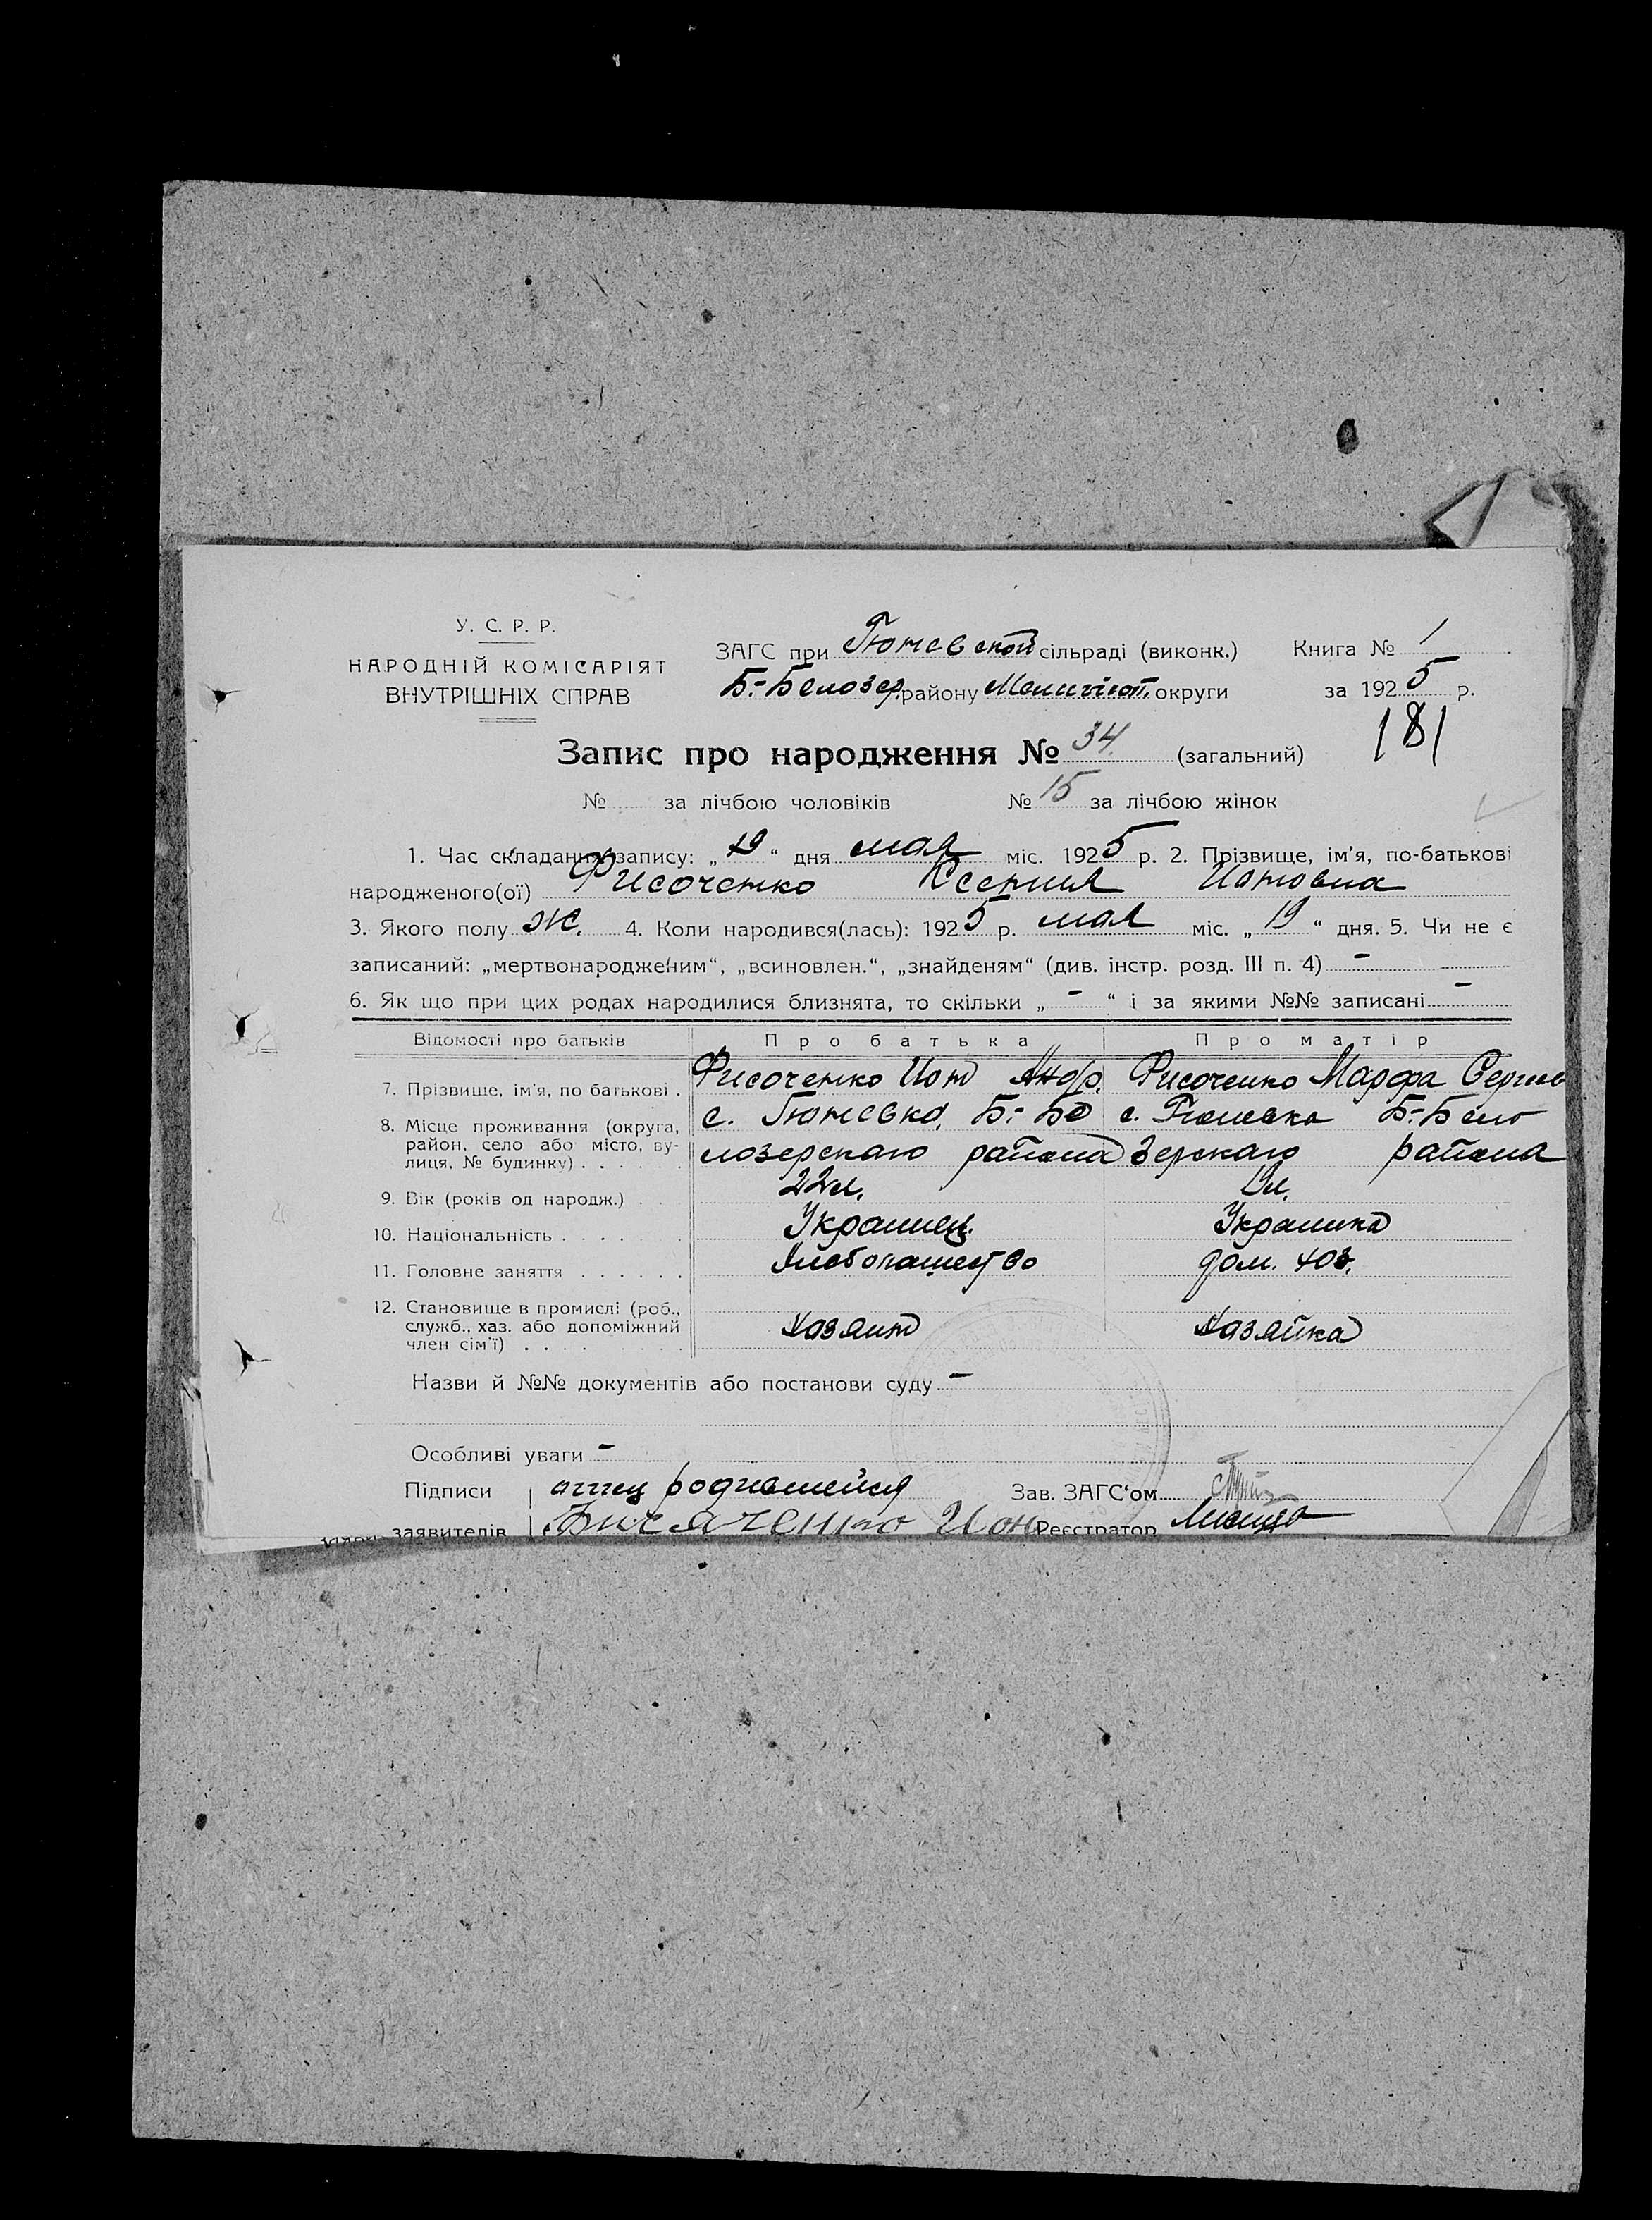 У. С. Р. Р.
НАРОДНІЙ КОМІСАРІЯТ
ВНУТРІШНІХ СПРАВ
ЗАГС при Гюневской сільраді (виконк.) Книга № 1
Б.-Белозер. району округи за 1925 р.
181
Запис про народження № 34. (загальний)
№ за лічбою чоловіків № 15 за лічбою жінок
1. Час складання запису: „19“ дня мая міс. 1925 р. 2. Прізвище, ім’я, по-батькові
народженого(ої) Фисоченко Ксения Ионовна
3. Якого полу Ж. 4. Коли народився(лась): 1925 р. мая міс. „19“ дня. 5. Чи не є
записаний: „мертвонародженим“, „всиновлен.“, „знайденям“ (див. інстр. розд. III п. 4) -
6. Як що при цих родах народилися близнята, то скільки „ - “ і за якими №№ записані -
Відомості про батьків Про батька Про матір
7. Прізвище, ім’я, по батькові . Фисоченко Ион Андр. Фисоченко Марфа Сергеев
8. Місце проживання (округа, район, село або місто, вулиця, № будинку) . . . . . с. Гюневка, Б.-Бе лозерскаго района с. Гюневка Б.-Бело зерскаго района
9. Вік (років од народж.) . . 22 л.
10. Національність . . . . Украинец Украинка
11. Головне заняття . . . . . . Хлебопашество дом. хоз.
12. Становище в промислі (роб., служб., хаз. або допоміжний член сім’ї) . . . . . . . . . Хазяин Хазяйка
Назви й №№ документів або постанови суду -
Особливі уваги -
Підписи отец родившейся Зав. ЗАГС‘ом
заявителів Ион Реєстратор